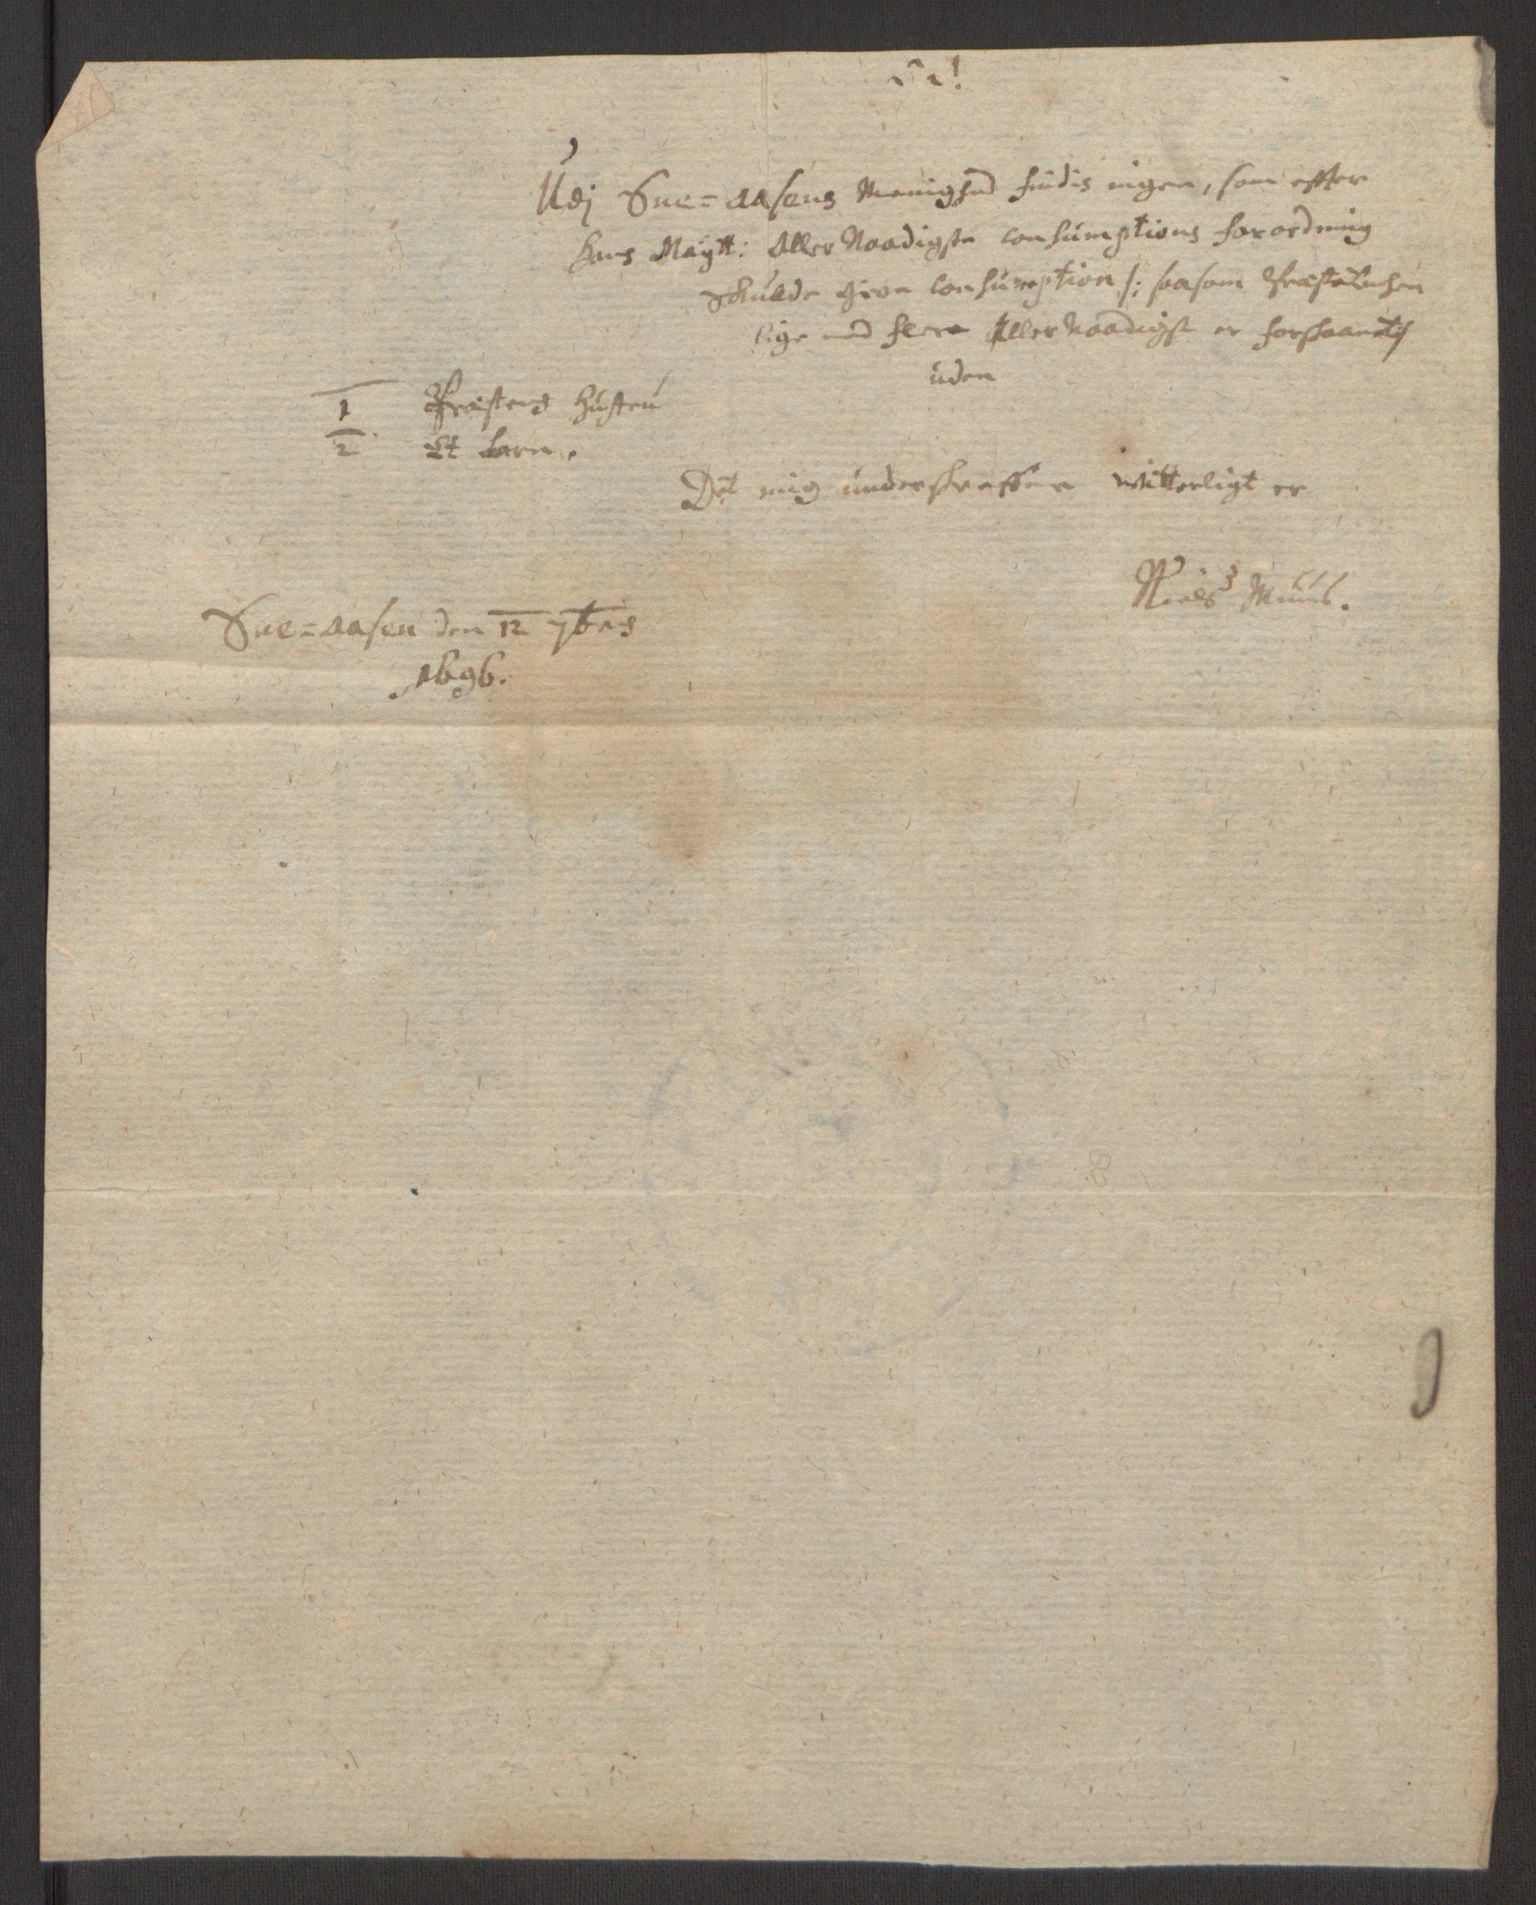 Udj Sne=aasens Meenighed findis ingen, som effter
hans Maÿtt: Aller Naadigste consumptions forordning
schulde give consumption /: saasom
lige med flere Aller Naadigst er forskaanet /
uden
1 Præstens hustru
2 Et barn.
Det mig underskreffven witterligt er
Niels Muus.
Sne=aasen den 12 7bris
1696.